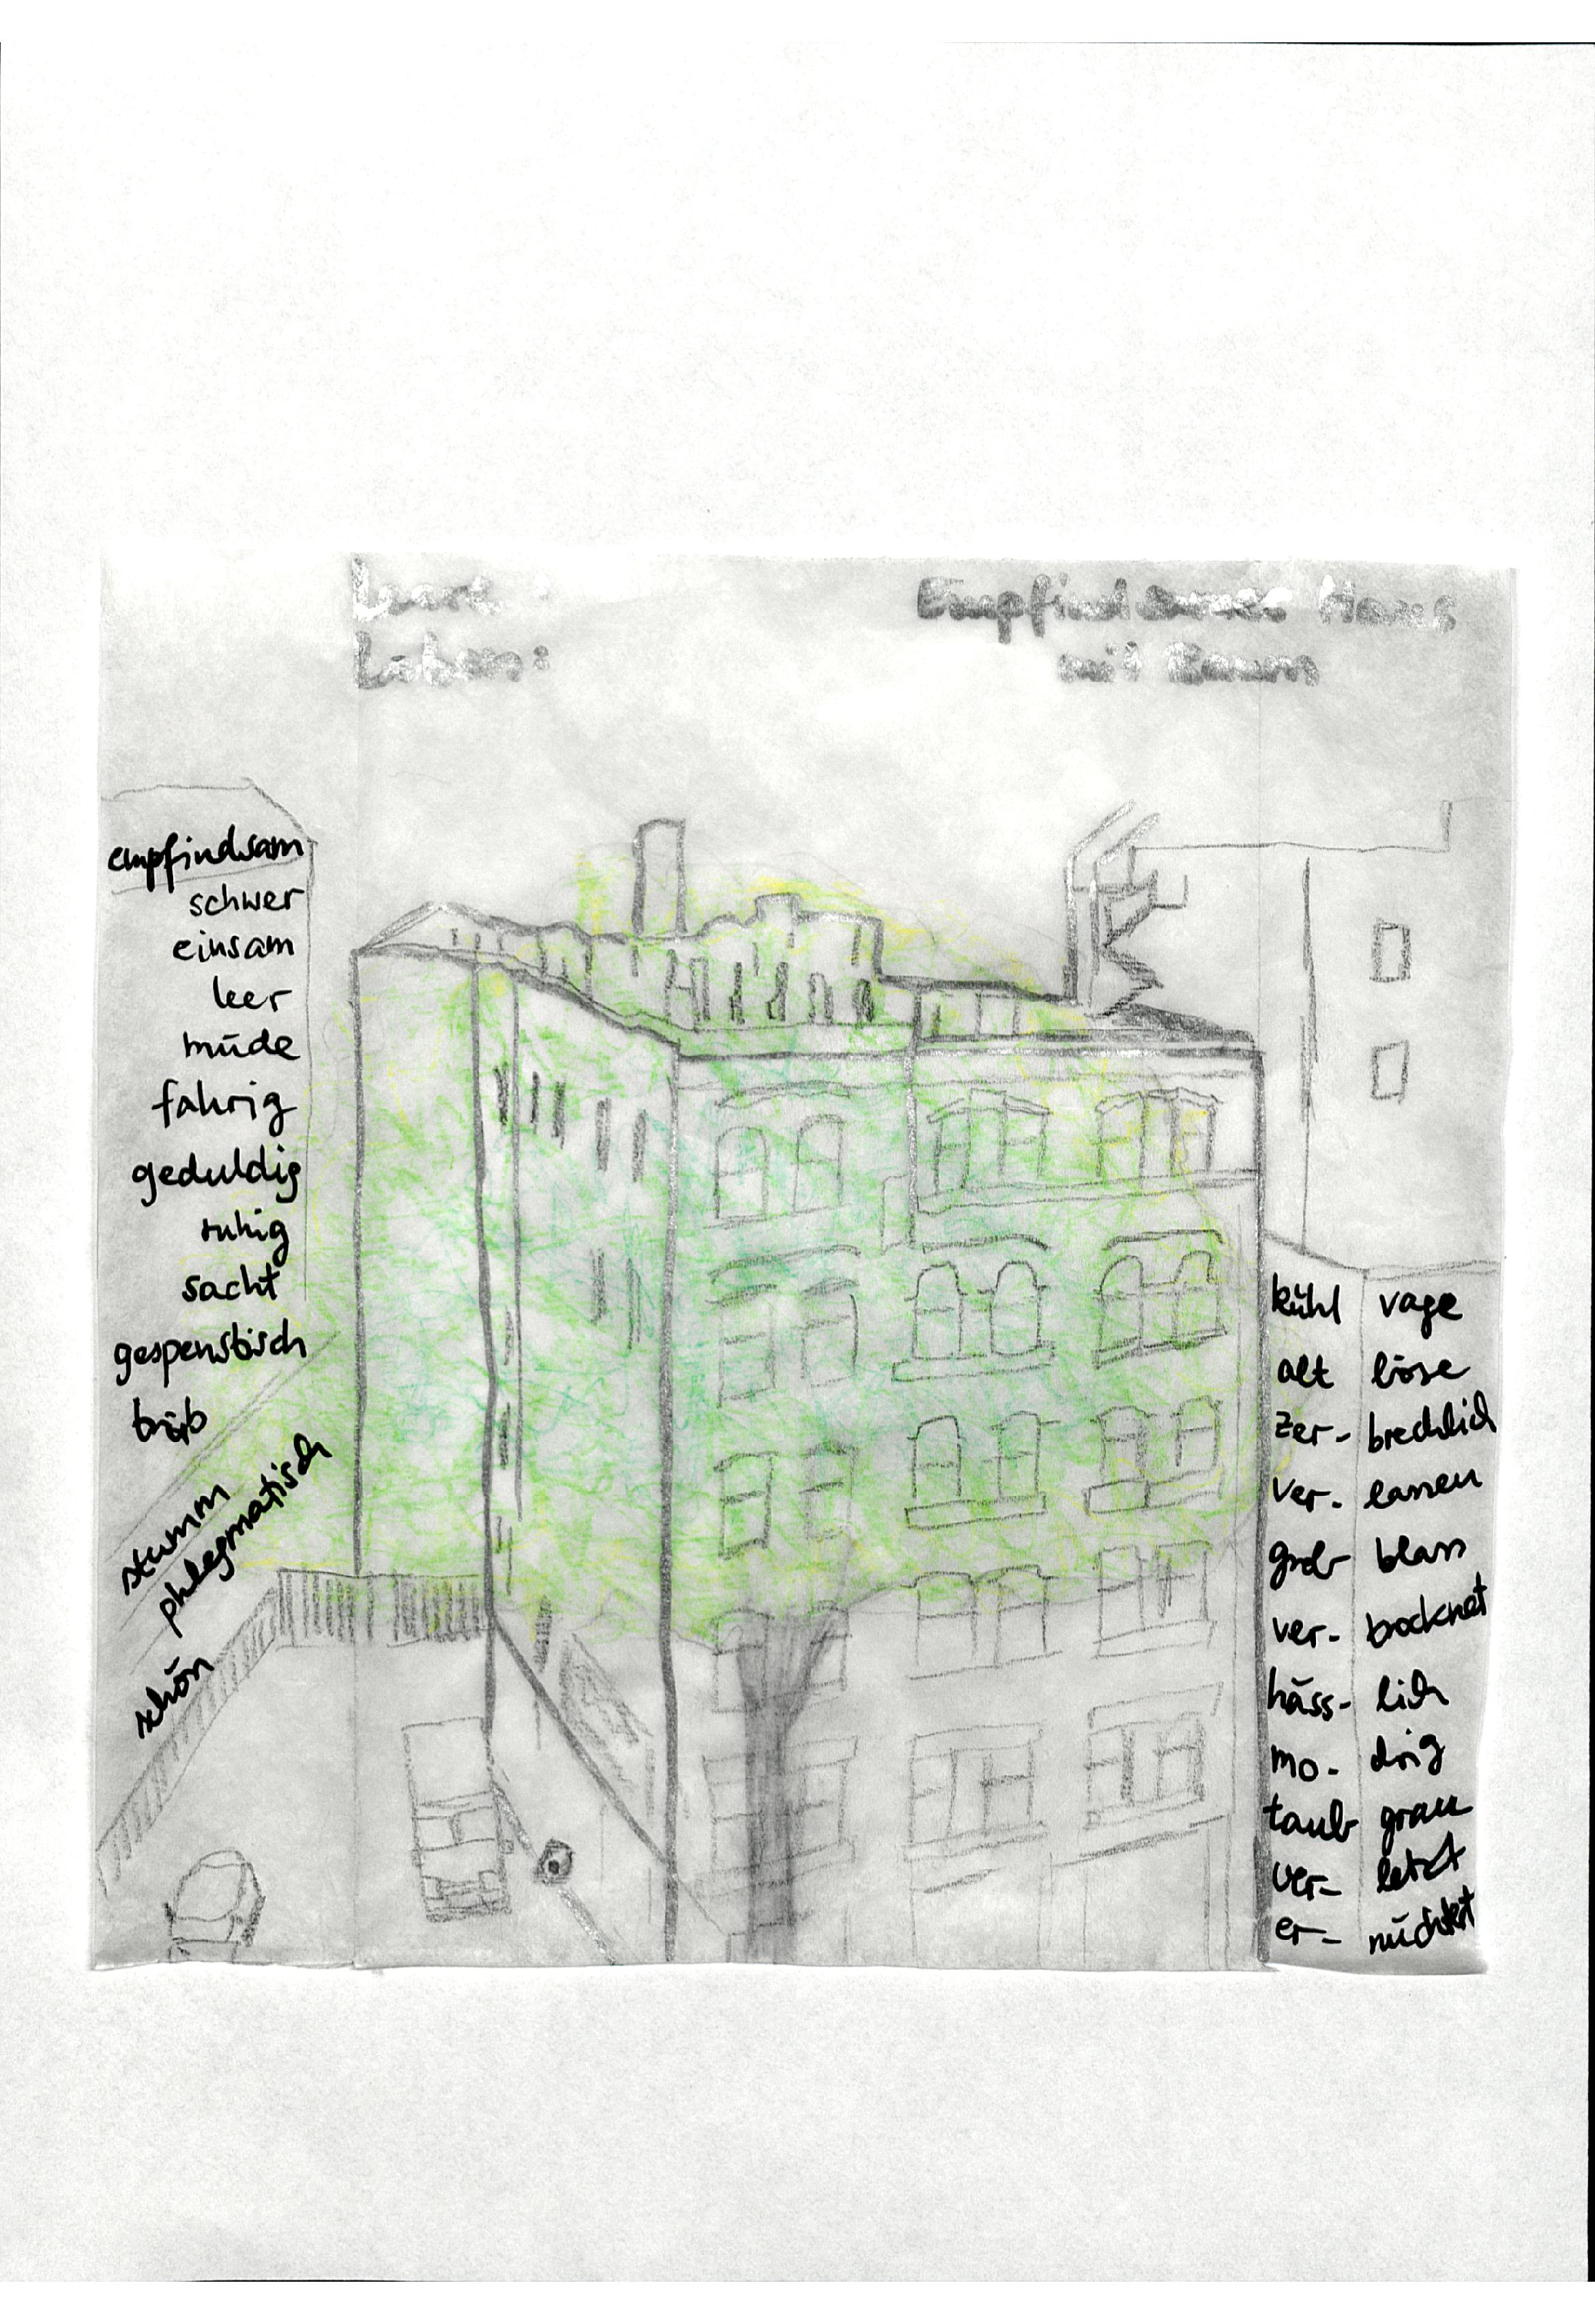 Empfindsames Haus
mit Baum
empfindsam
schwer
einsam
leer
müde
fahrig
geduldig
ruhig
sacht
gespenstisch
trüb
stumm
phlegmatisch
schön
kühl vage
alt böse
zer- brechlich
ver- lassen
grob blass
ver- trocknet
häss- lich
mo- drig
taub grau
ver- letzt
er- nüchtert